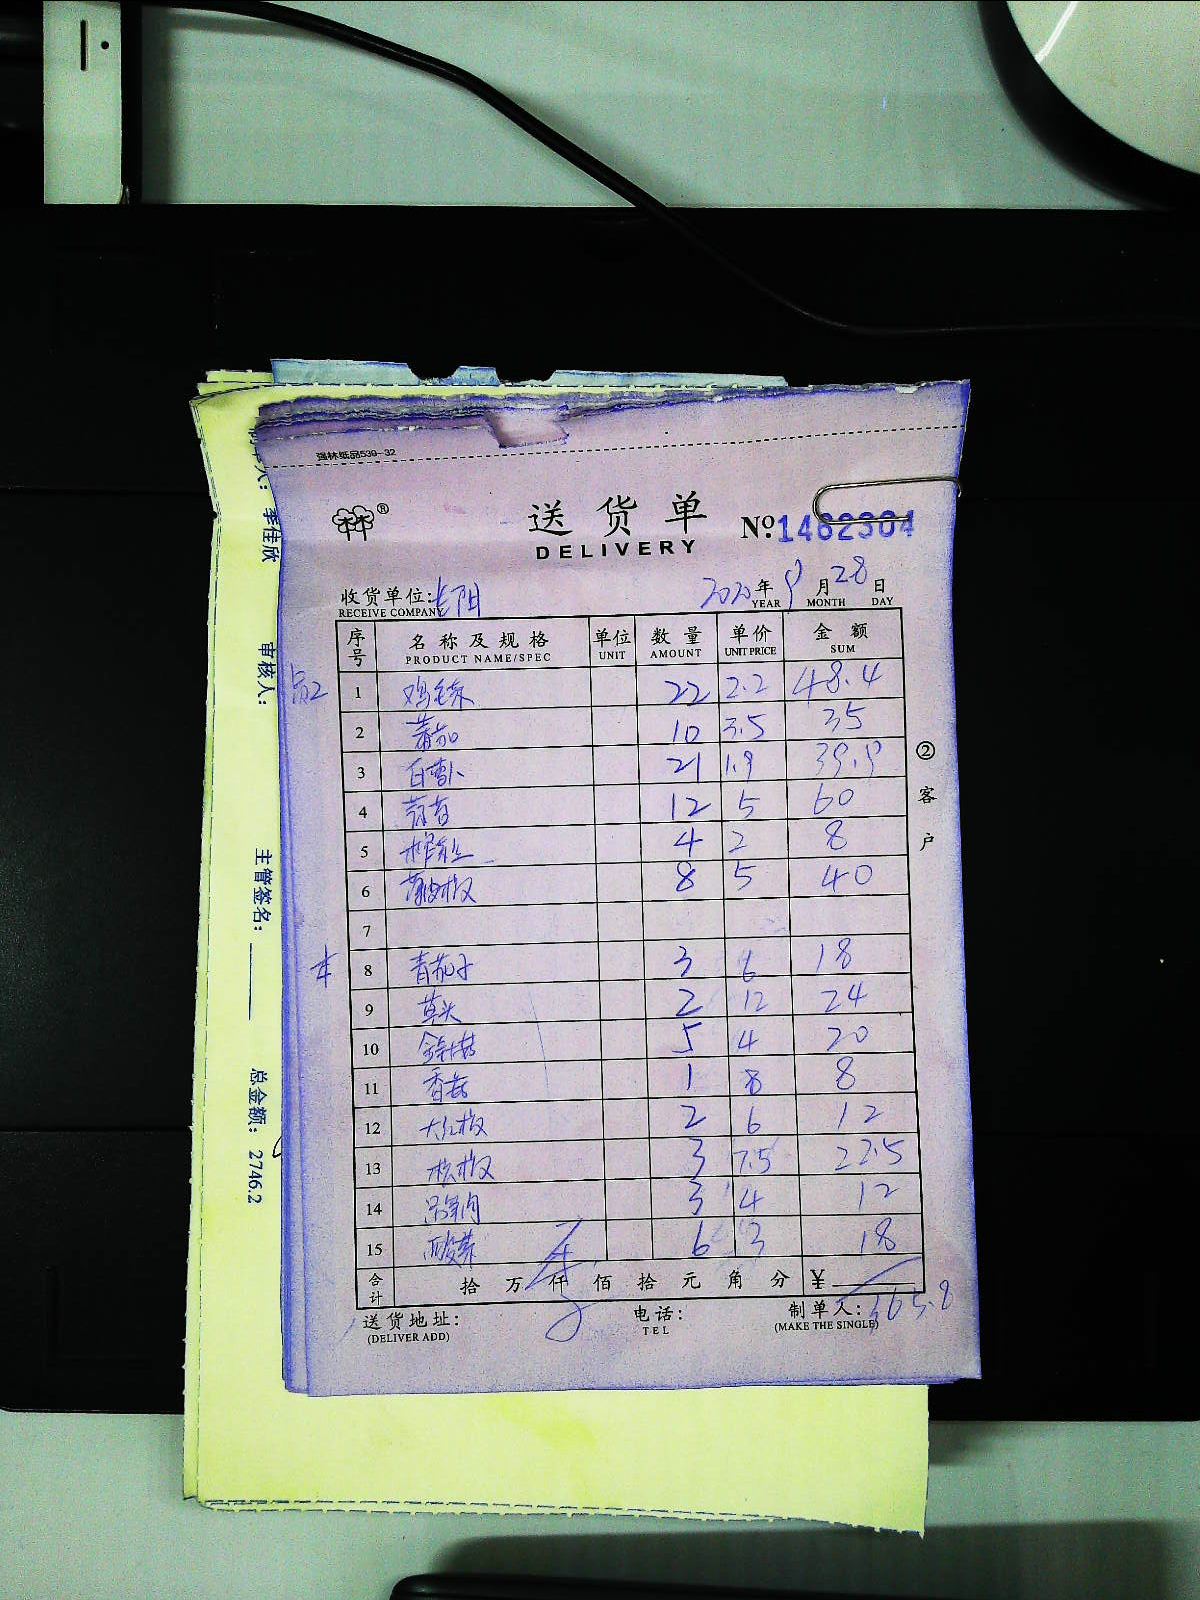 强林纸品539-32
送货单
DELIVERY
№:1462304
收货单位:
RECEIVE COMPANY
2020年9月28日
YEAR MONTH DAY
序号 名称及规格 单位 数量 单价 金额
PRODUCT NAME/SPEC UNIT AMOUNT UNIT PRICE SUM
1 鸡毛菜 22 2.2 48.4
2 10 3.5 35
3 白萝卜 21 1.9 39.9
4 12 5 60
5 4 2 8
6 8 5 40
7
8 青茄子 3 6 18
9 草头 2 12 24
10 金针菇 5 4 20
11 香菇 1 8 8
12 大红椒 2 6 12
13 3 7.5 22.5
14 3 4 12
15 6 3 18
合计 拾 万 仟 佰 拾 元 角 分 ¥ 365.8
送货地址: 电话: 制单人:
(DELIVER ADD) TEL (MAKE THE SINGLE)
②客户
李佳欣
审核人:
主管签名:
总金额: 2746.2